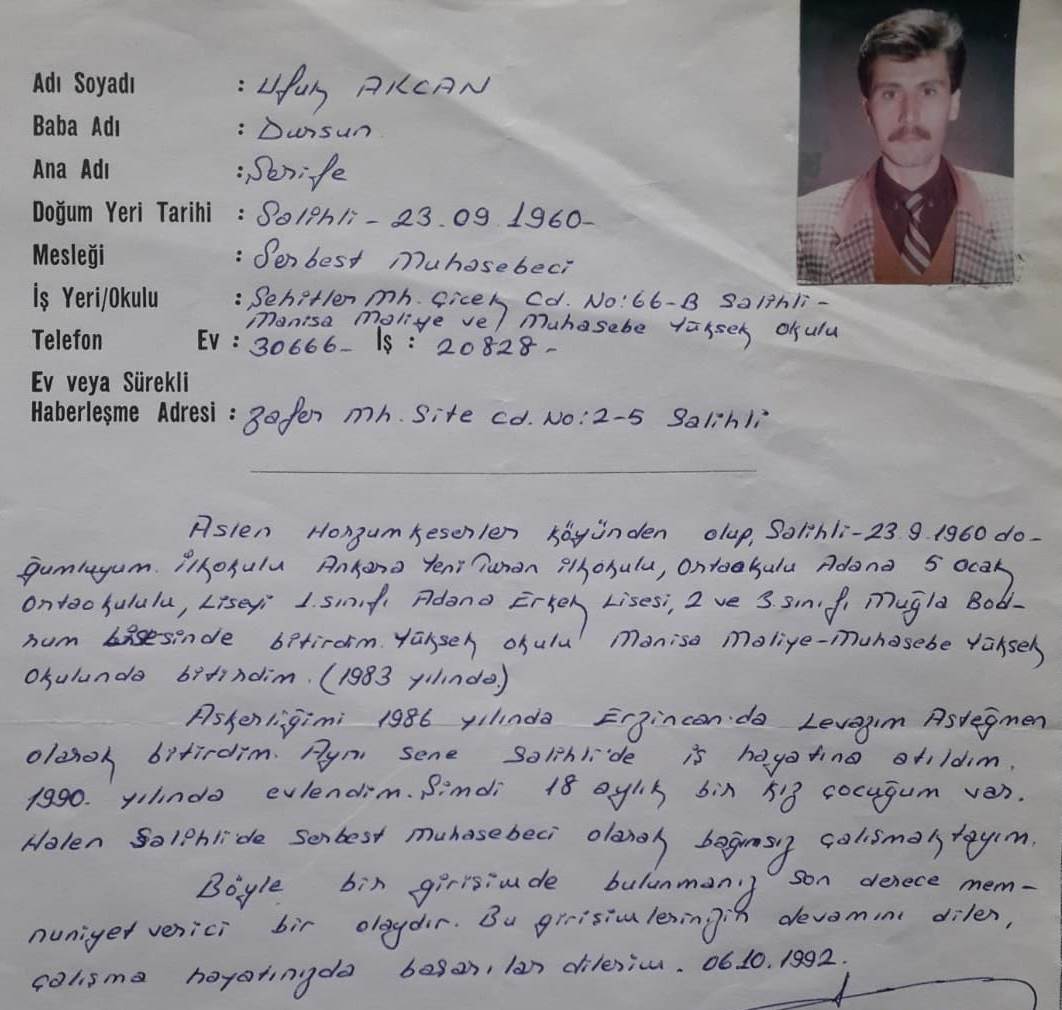 Adı Soyadı : Ufuk AKCAN
Baba Adı : Dursun
Ana Adı : Şerife
Doğum Yeri Tarihi : Salihli - 23.09.1960-
Mesleği : Serbest Muhasebeci
İş Yeri/Okulu : Şehitler Mh. Çiçek Cd. No:66-B Salihli-
Manisa Maliye ve Muhasebe Yüksek Okulu
Telefon Ev : 30666- İş : 20828-
Ev veya Sürekli
Haberleşme Adresi : Zafer Mh. Site Cd. No:2-5 Salihli
Aslen Horzumkeserler köyünden olup, Salihli-23.9.1960 do-
ğumluyum. İlkokulu Ankara Yeni Turan ilkokulu, Ortaokulu Adana 5 Ocak
Ortaokululu, Liseyi 1.sınıfı Adana Erkek Lisesi, 2 ve 3.sınıfı Muğla Bod-
rum Lisesinde bitirdim. Yüksek okulu Manisa Maliye-Muhasebe Yüksek
Okulunda bitirdim. (1983 yılında.)
Askerliğimi 1986 yılında Erzincan'da Levazım Asteğmen
olarak bitirdim. Aynı sene Salihli'de iş hayatına atıldım.
1990. yılında evlendim. Şimdi 18 aylık bir kız çocuğum var.
Halen Salihli'de Serbest Muhasebeci olarak bağımsız çalışmaktayım.
Böyle bir girişimde bulunmanız son derece mem-
nuniyet verici bir olaydır. Bu girişimleringin devamını diler,
çalışma hayatınızda başarılar dilerim. 06.10.1992.